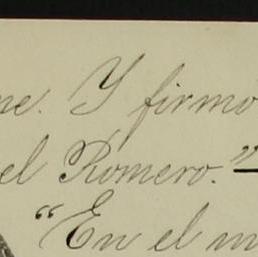 ne. Y firmo
el Romero."—
"En el m